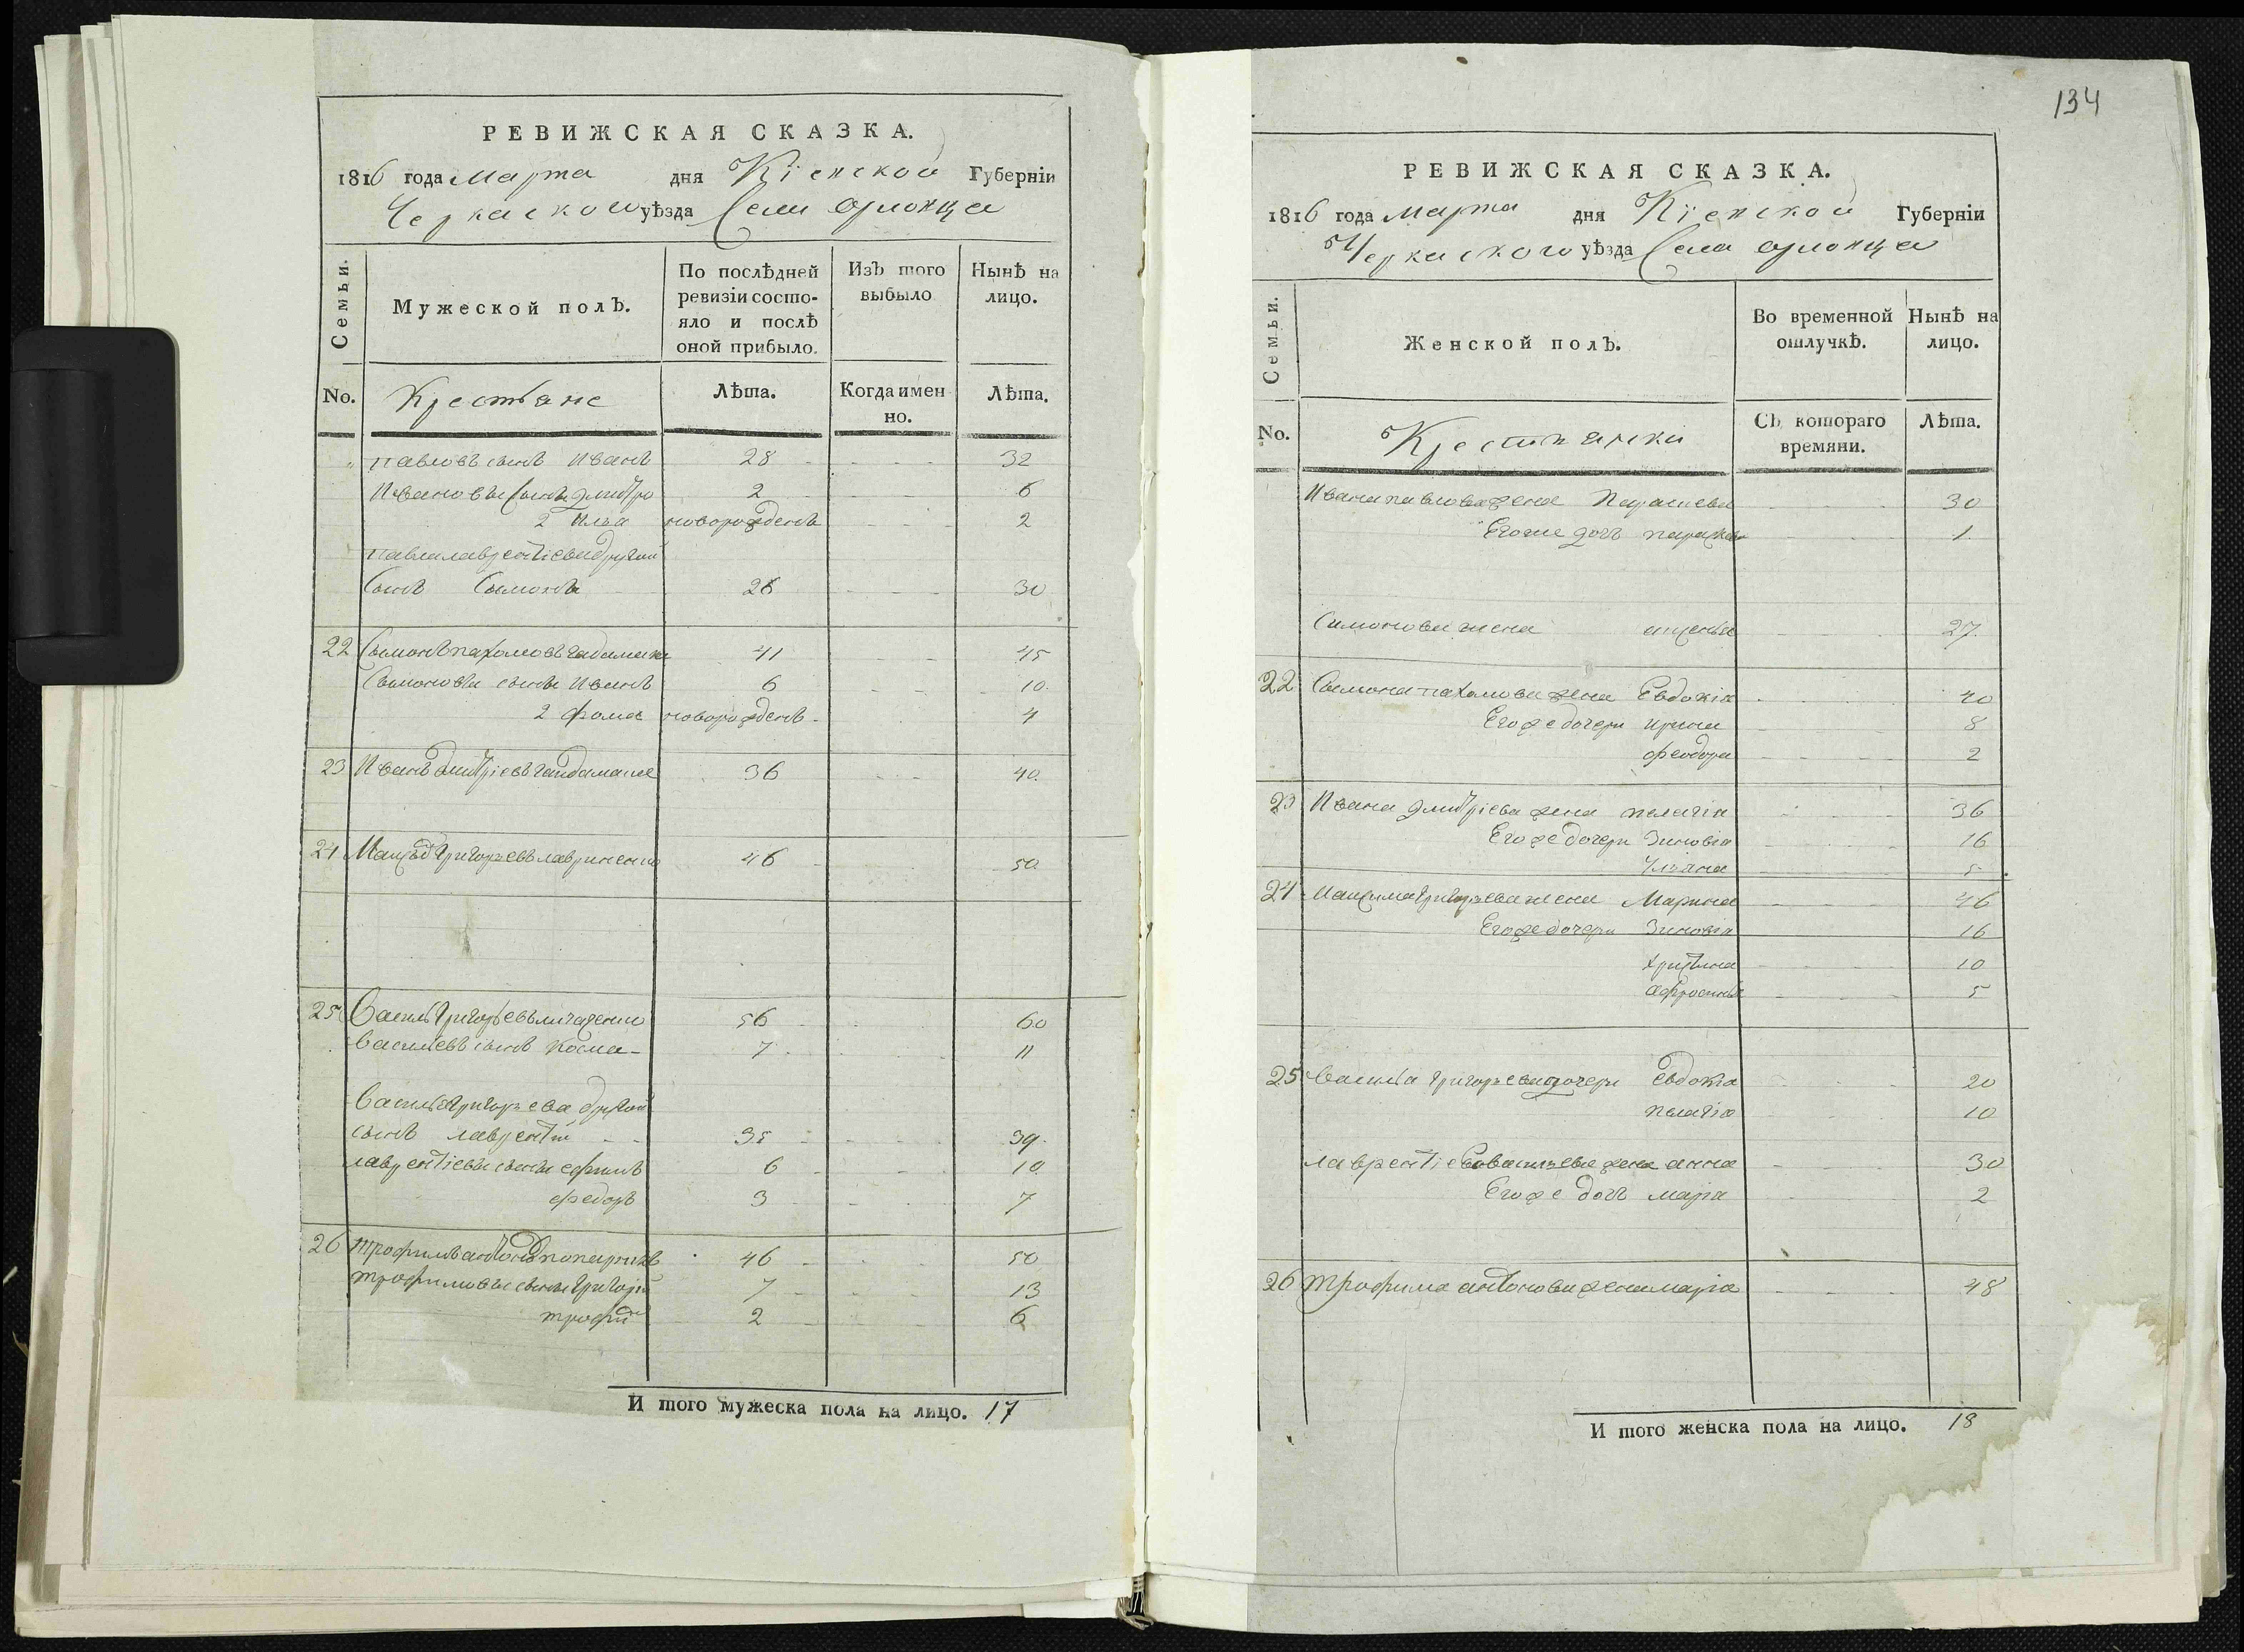 РЕВИЖСКАЯ СКАЗКА.
1816 года Марта дня Кіевской Губерніи
Черкаского уѣзда Села орловца
Семьи.
Мужеской полъ.
По послѣдней ревизіи состояло и послѣ оной прибыло.
Изъ того выбыло
Нынѣ на лицо.
No. Крестьяне Лѣта. Когда имен но. Лѣта.
павловъ сынъ Иванъ 28 32
Ивановы сыны дмитро 2 6
2 Илья новорожденъ 2
павла лаврентіева другой
Сынъ Симонъ 26 30
22 Симонъ пахомовъ 41 45
Симоновы сыны Иванъ 6 10
2 фома новорожденъ 4
23 Иванъ дмитріевъ гайдамака 36 40
24 григорьевъ лавриненко 46 50
25 Василь григорьевъ 56 60
Васильевъ сынъ Косма 7 11
Василья григорьева другой
сынъ лаврентій 35 39
лаврентіевы сыны ефимъ 6 10
федоръ 3 7
26 трофимъ антоновъ 46 50
трофимовы сыны григорій 7 13
2 6
И того мужеска пола на лицо. 17
134
РЕВИЖСКАЯ СКАЗКА.
1816 года Марта дня Кіевской Губерніи
Черкаского уѣзда Села орловца
Семьи.
Женской полъ.
Во временной отлучкѣ.
Нынѣ на лицо.
No. Крестьянки Съ котораго времяни. Лѣта.
Ивана павлова жена 30
Егоже дочь 1
Симонова жена 27
22 Симона пахомова жена Евдокія 40
Егоже дочери ирина 8
феодора 2
23 Ивана дмитріева жена пелагія 36
Егоже дочери Зиновія 16
Уліяна 5
24 Максима григорьева жена Марина 46
Егоже дочери Зиновія 16
христина 10
афросинья 5
25 Василья григорьева дочери Евдокія 20
пелагія 10
лаврентіе васильева жена анна 30
Егоже дочь марія 2
26 трофима антонова жена марія 48
И того женска пола на лицо. 18